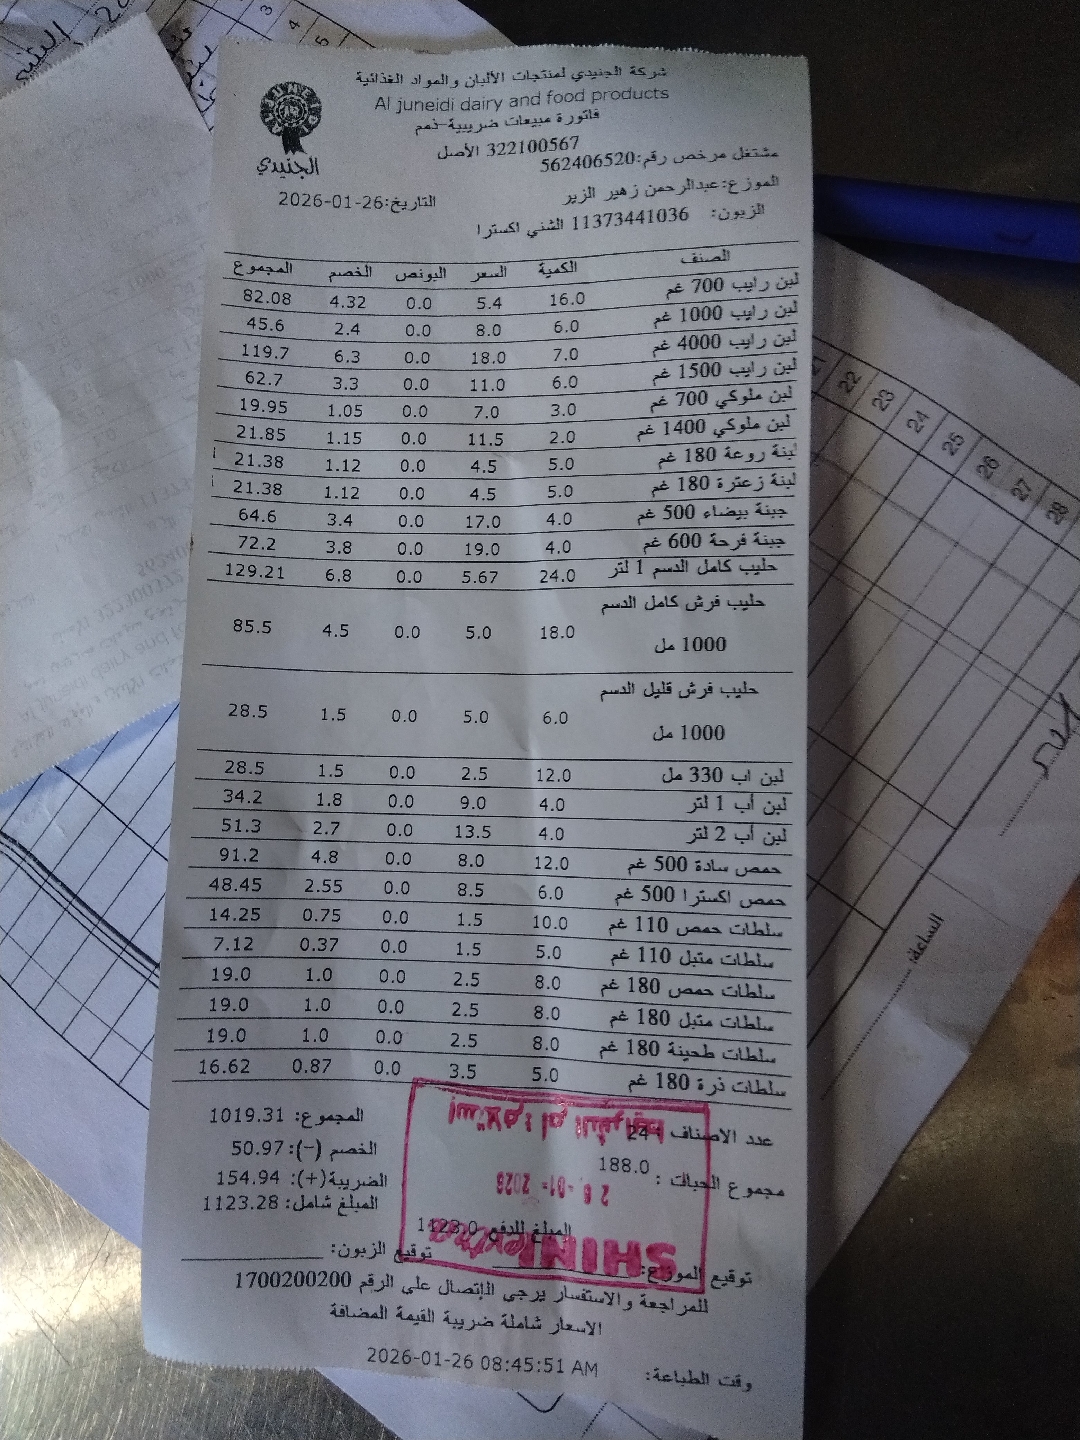 شركة الجنيدي لمنتجات الألبان والمواد الغذائية
Al juneidi dairy and food products
فاتورة مبيعات ضريبية-ذمم
الجنيدي
322100567 الأصل
مشتغل مرخص رقم:562406520
الموزع:عبدالرحمن زهير الزير
التاريخ:2026-01-26
الزبون: 11373441036 الشني اكسترا
الصنف الكمية السعر البونص الخصم المجموع
لبن رايب 700 غم 16.0 5.4 0.0 4.32 82.08
لبن رايب 1000 غم 6.0 8.0 0.0 2.4 45.6
لبن رايب 4000 غم 7.0 18.0 0.0 6.3 119.7
لبن رايب 1500 غم 6.0 11.0 0.0 3.3 62.7
لبن ملوكي 700 غم 3.0 7.0 0.0 1.05 19.95
لبن ملوكي 1400 غم 2.0 11.5 0.0 1.15 21.85
لبنة روعة 180 غم 5.0 4.5 0.0 1.12 21.38
لبنة زعترة 180 غم 5.0 4.5 0.0 1.12 21.38
جبنة بيضاء 500 غم 4.0 17.0 0.0 3.4 64.6
جبنة فرحة 600 غم 4.0 19.0 0.0 3.8 72.2
حليب كامل الدسم 1 لتر 24.0 5.67 0.0 6.8 129.21
حليب فرش كامل الدسم
1000 مل 18.0 5.0 0.0 4.5 85.5
حليب فرش قليل الدسم
1000 مل 6.0 5.0 0.0 1.5 28.5
لبن اب 330 مل 12.0 2.5 0.0 1.5 28.5
لبن أب 1 لتر 4.0 9.0 0.0 1.8 34.2
لبن أب 2 لتر 4.0 13.5 0.0 2.7 51.3
حمص سادة 500 غم 12.0 8.0 0.0 4.8 91.2
حمص اكسترا 500 غم 6.0 8.5 0.0 2.55 48.45
سلطات حمص 110 غم 10.0 1.5 0.0 0.75 14.25
سلطات متبل 110 غم 5.0 1.5 0.0 0.37 7.12
سلطات حمص 180 غم 8.0 2.5 0.0 1.0 19.0
سلطات متبل 180 غم 8.0 2.5 0.0 1.0 19.0
سلطات طحينة 180 غم 8.0 2.5 0.0 1.0 19.0
سلطات ذرة 180 غم 5.0 3.5 0.0 0.87 16.62
عدد الاصناف : 24
المجموع: 1019.31
الخصم (-): 50.97
مجموع الحبات : 188.0
الضريبة(+): 154.94
المبلغ شامل: 1123.28
المبلغ للدفع 1123.0
توقيع الموزع: توقيع الزبون:
للمراجعة والاستفسار يرجي الإتصال علي الرقم 1700200200
الاسعار شاملة ضريبة القيمة المضافة
وقت الطباعة: 2026-01-26 08:45:51 AM
26 -01- 2026
SHINI extra
3
4
5
21
22
23
24
25
26
27
28
الساعة: